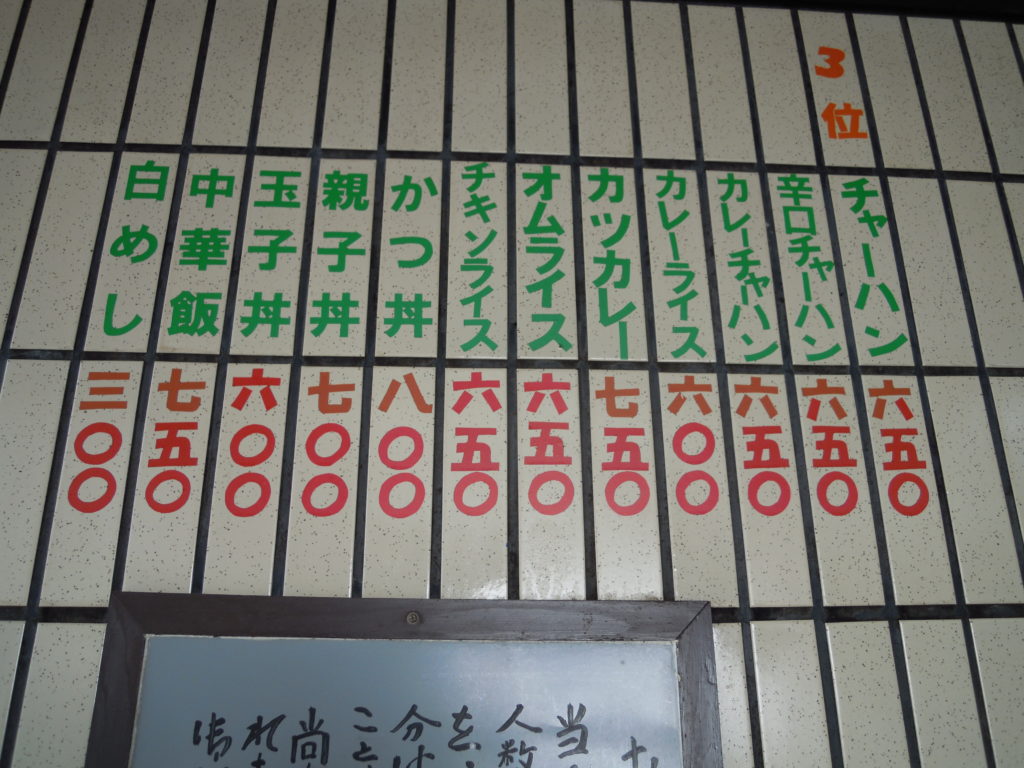 3位
チャーハン 六五〇
辛口チャーハン 六五〇
カレーチャハン 六五〇
カレーライス 六〇〇
カツカレー 七五〇
オムライス 六五〇
チキンライス 六五〇
かつ丼 八〇〇
親子丼 七〇〇
玉子丼 六〇〇
中華飯 七五〇
白めし 三〇〇
当
人数
を
分け
こと
尚
れ